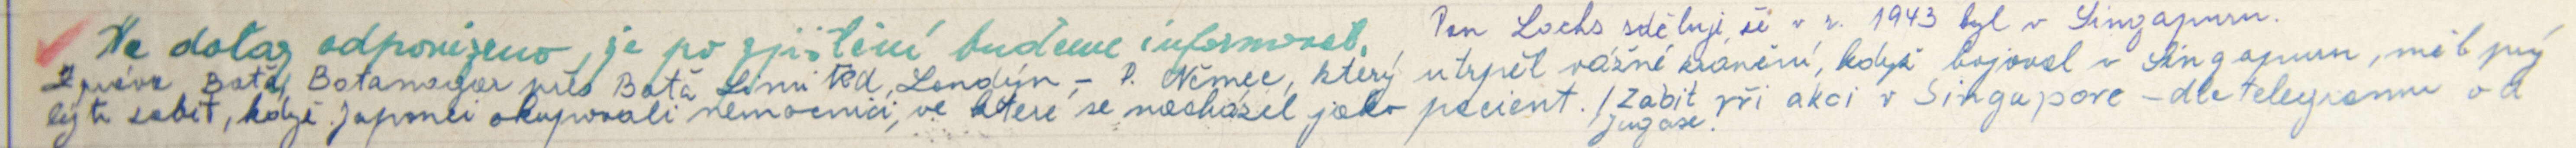 Na dotaz odpovězeno, že po zjištění budeme informovat. Pan Lochs sděluje, že v r. 1943 byl v Singapuru.
Zpráva Baťa, Batanagar přes Baťa Limited, Londýn, - P. Němec, který utrpěl vážné zranění, když bojoval v Singapuru, měl prý
býti zabit, když Japonci okupovali nemocnici, ve které se nacházel jako pacient. / Zabit při akci v Singapore - dle telegramu od
Jugase.